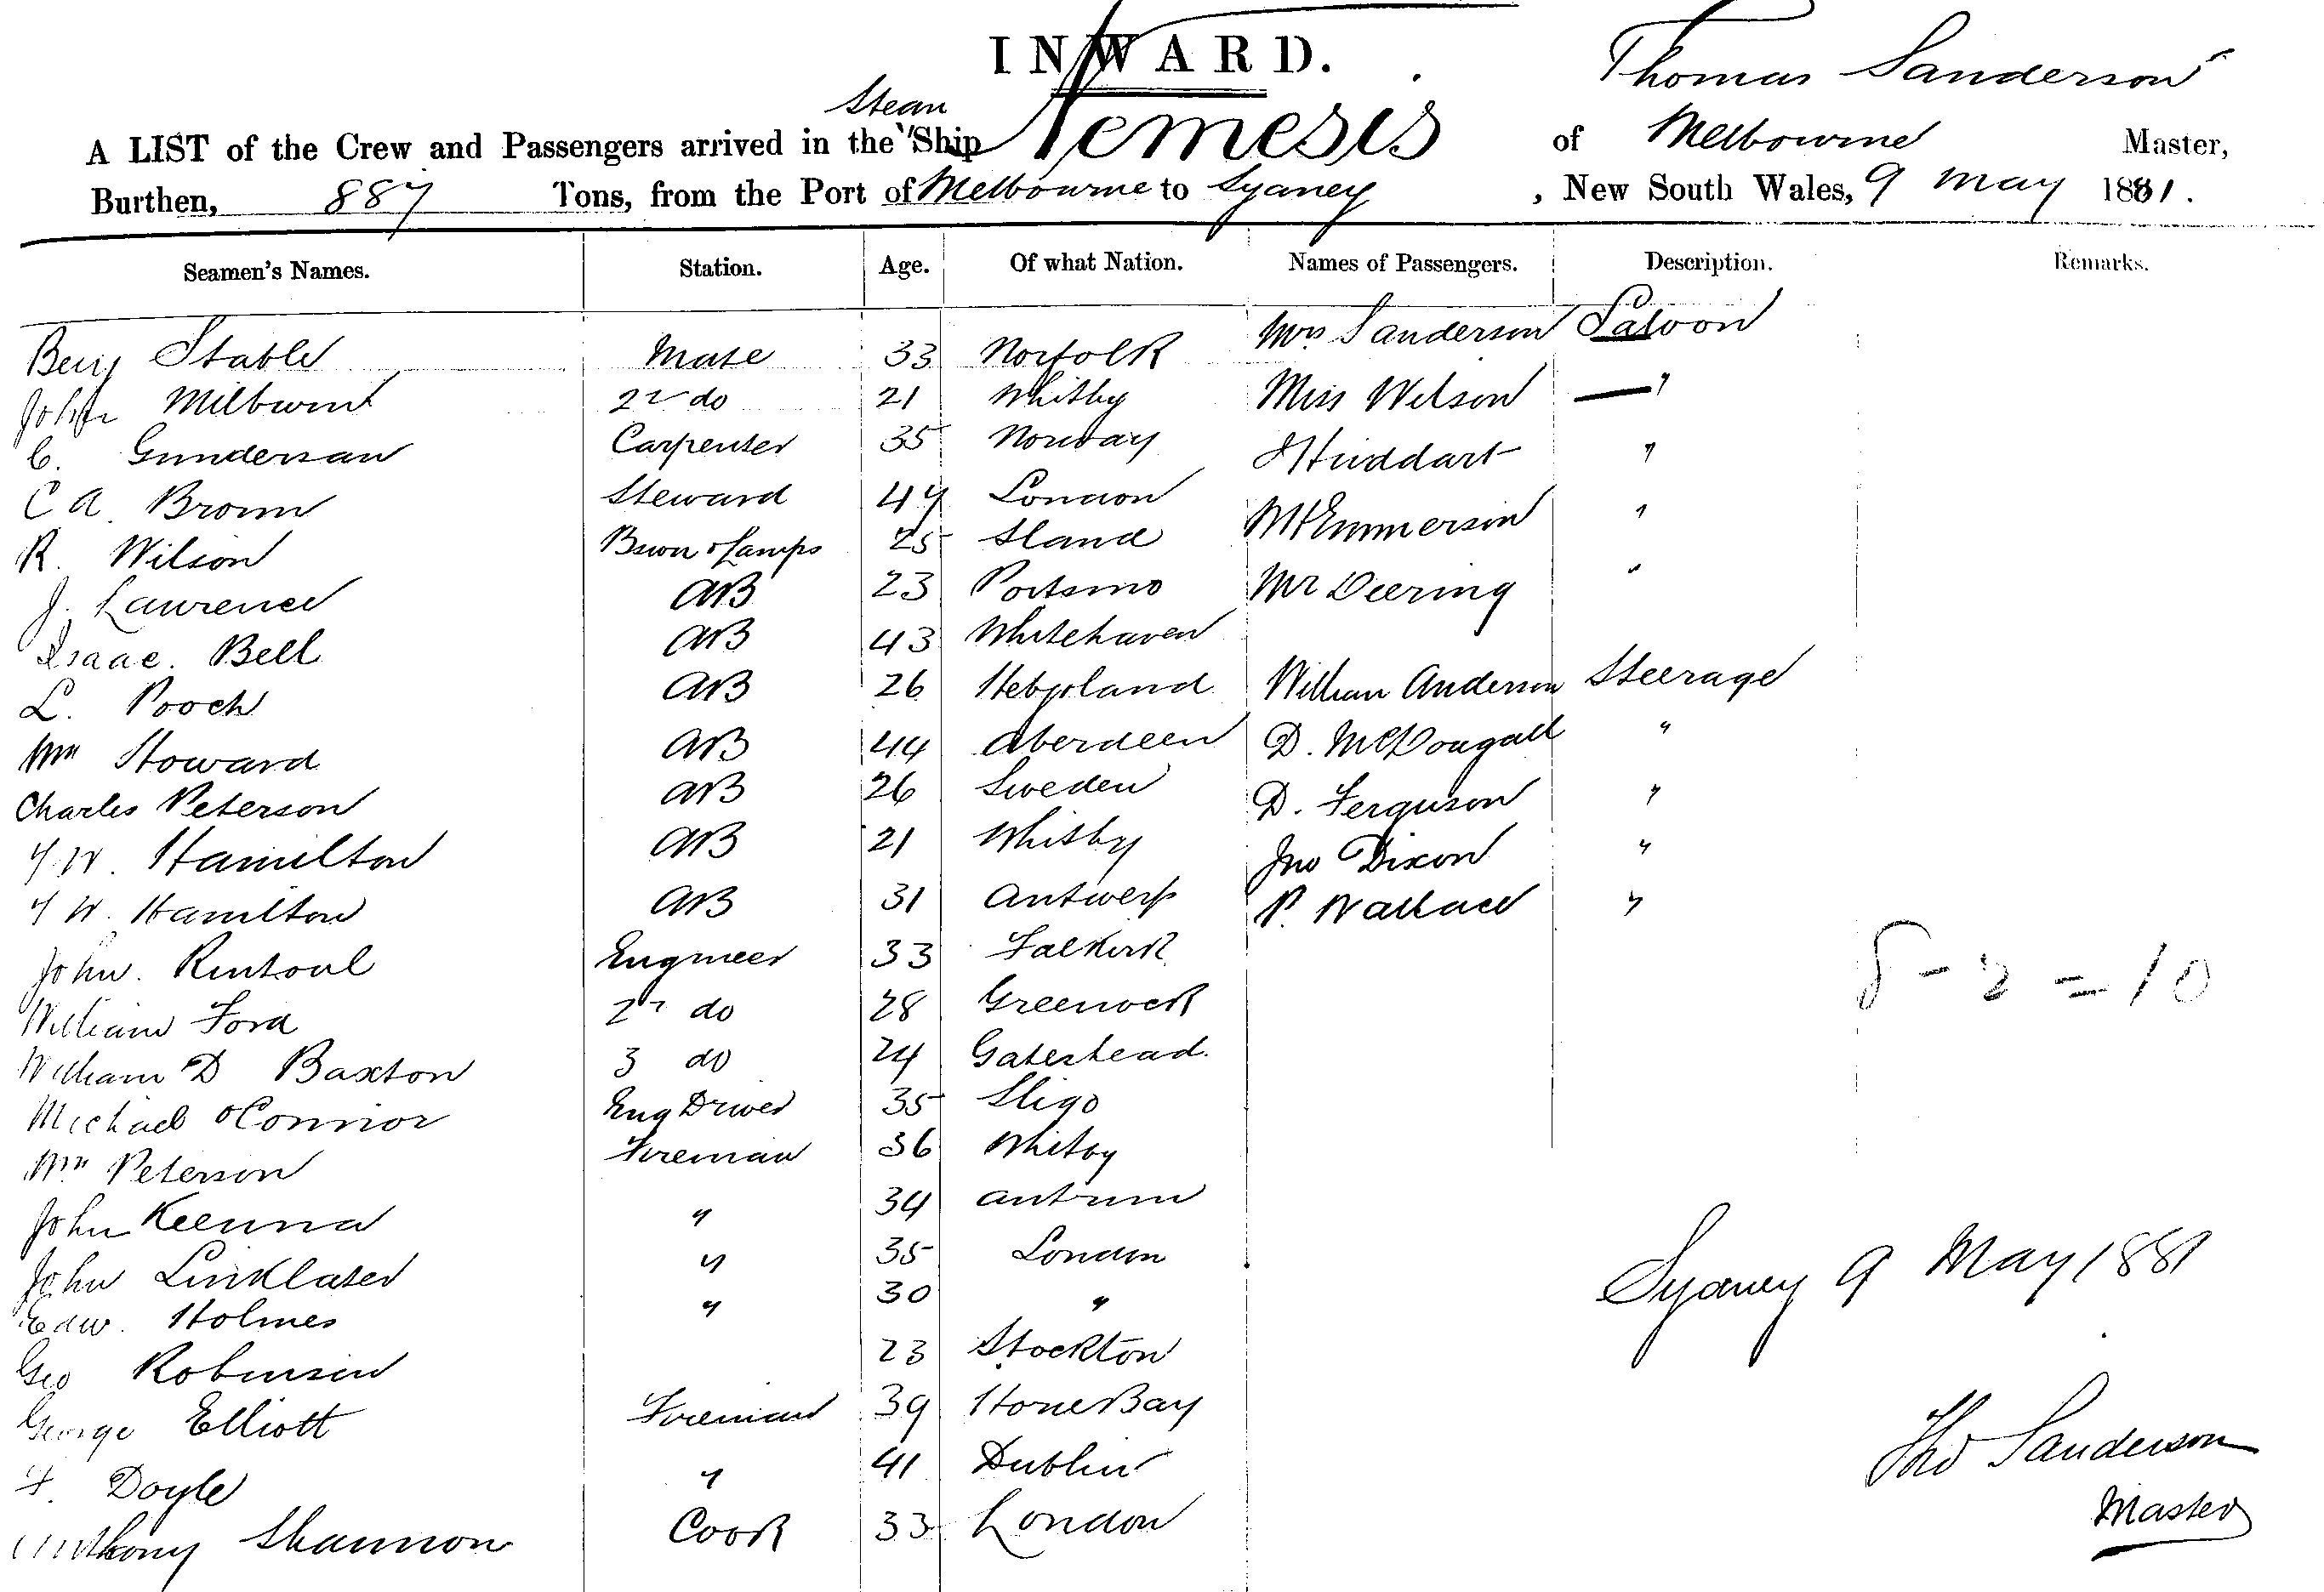 INWARD.
Thomas Sanderson
Steam
A LIST of the Crew and Passengers arrived in the "Ship Nemesis of Melbourne Master,
Burthen, 887 Tons, from the Port of Melbourne to Sydney, New South Wales, 9 May 1881.
Seamen's Names. Station. Age. Of what Nation. Names of Passengers. Description. Remarks.
Benj Stable Mate 33 Norfolk Mrs Sanderson Saloon
John 2nd do 21 Whitby Miss Wilson "
C. Gundersan Carpenter 35 Norway Huddart "
C A. Brown Steward 47 London Emmerson "
R. Wilson Bswn & Lamps 25 Mr Deering "
J. Laurence AB 23 Portsmo
Isaac. Bell AB 43 Whitehaven
L. Pooch AB 26 William Anderson Steerage
Wm Howard AB 44 Aberdeen D. McDougall "
Charles Peterson AB 26 Sweden D. Ferguson "
W. Hamilton AB 21 Whitby Jno Dixon "
W. Hamilton AB 31 Antwerp P. Wallace "
John. Rintoul Engineer 33 Falkirk
8 - 2 = 10
William Ford 2nd do 28 Greenock
William D Baxton 3 do 24 Gateshead.
Michael OConnor Eng Driver 35 Sligo
Wm Peterson Fireman 36 Whitby
John Keenna " 34 Antrim
John Linklater " 35 London
Edw. Holmes " 30 "
Sydney 9 May 1881
Geo Robinson 23 Stockton
George Elliott Fireman 39 Bay
F. Doyle " 41 Dublin
Tho Sanderson
Master
Anthony Shannon Cook 33 London